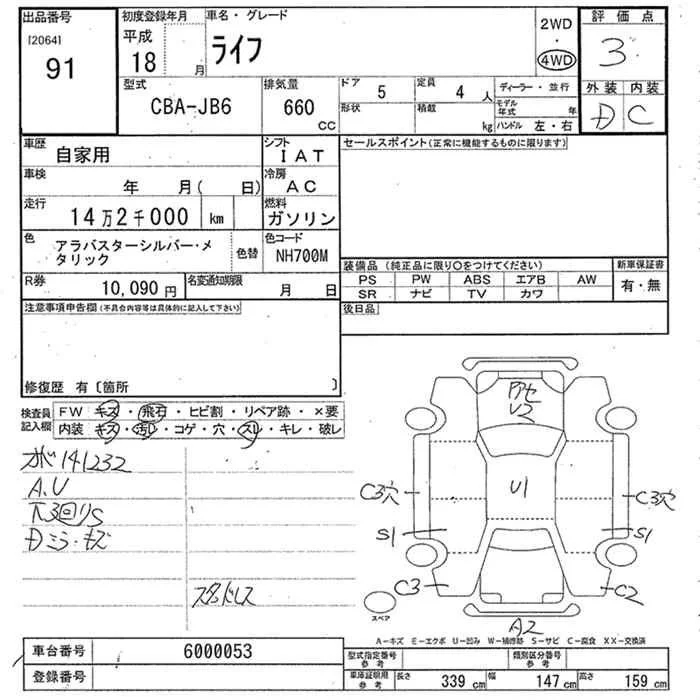 出品番号
[2064]
91
初度登録年月
平成
18 月
車名・グレード
ライフ
2WD
・
4WD
評価点
3
外装 内装
D C
型式
CBA-JB6
排気量
660
CC
ドア
5
定員
4 人
ディーラー・並行
形状
積載
kg
モデル
年式 年
ハンドル 左・右
車歴
自家用
シフト
IAT
車検
年 月( 日)
冷房
AC
走行
14万2千000 km
燃料
ガソリン
色
アラバスターシルバー・メ
タリック
色替
色コード
NH700M
R券
10,090 円
名変通知期限
月 日
セールスポイント(正常に機能するものに限ります)
装備品 (純正品に限り○をつけてください)
PS PW ABS エアB AW
SR ナビ TV カワ
新車保証書
有・無
後日品
注意事項申告欄 (不具合内容等は具体的に記入して下さい)
修復歴 有〔箇所 〕
検査員
記入欄
FW キズ・飛石・ヒビ割・リペア跡・×要
内装 キズ・汚れ・コゲ・穴・スレ・キレ・破レ
141232
A.U
下3回りS
Dミラ・キズ
スタッドレス
U2
U1
C3穴
C3穴
S1
S1
C3
C2
A2
スペア
A-キズ E-エクボ U-凹み W-補修跡 S-サビ C-腐食 XX-交換済
車台番号
6000053
登録番号
型式指定番号
参考
類別区分番号
参考
車庫証明用
参考
長さ 339 cm 幅 147 cm 高さ 159 cm